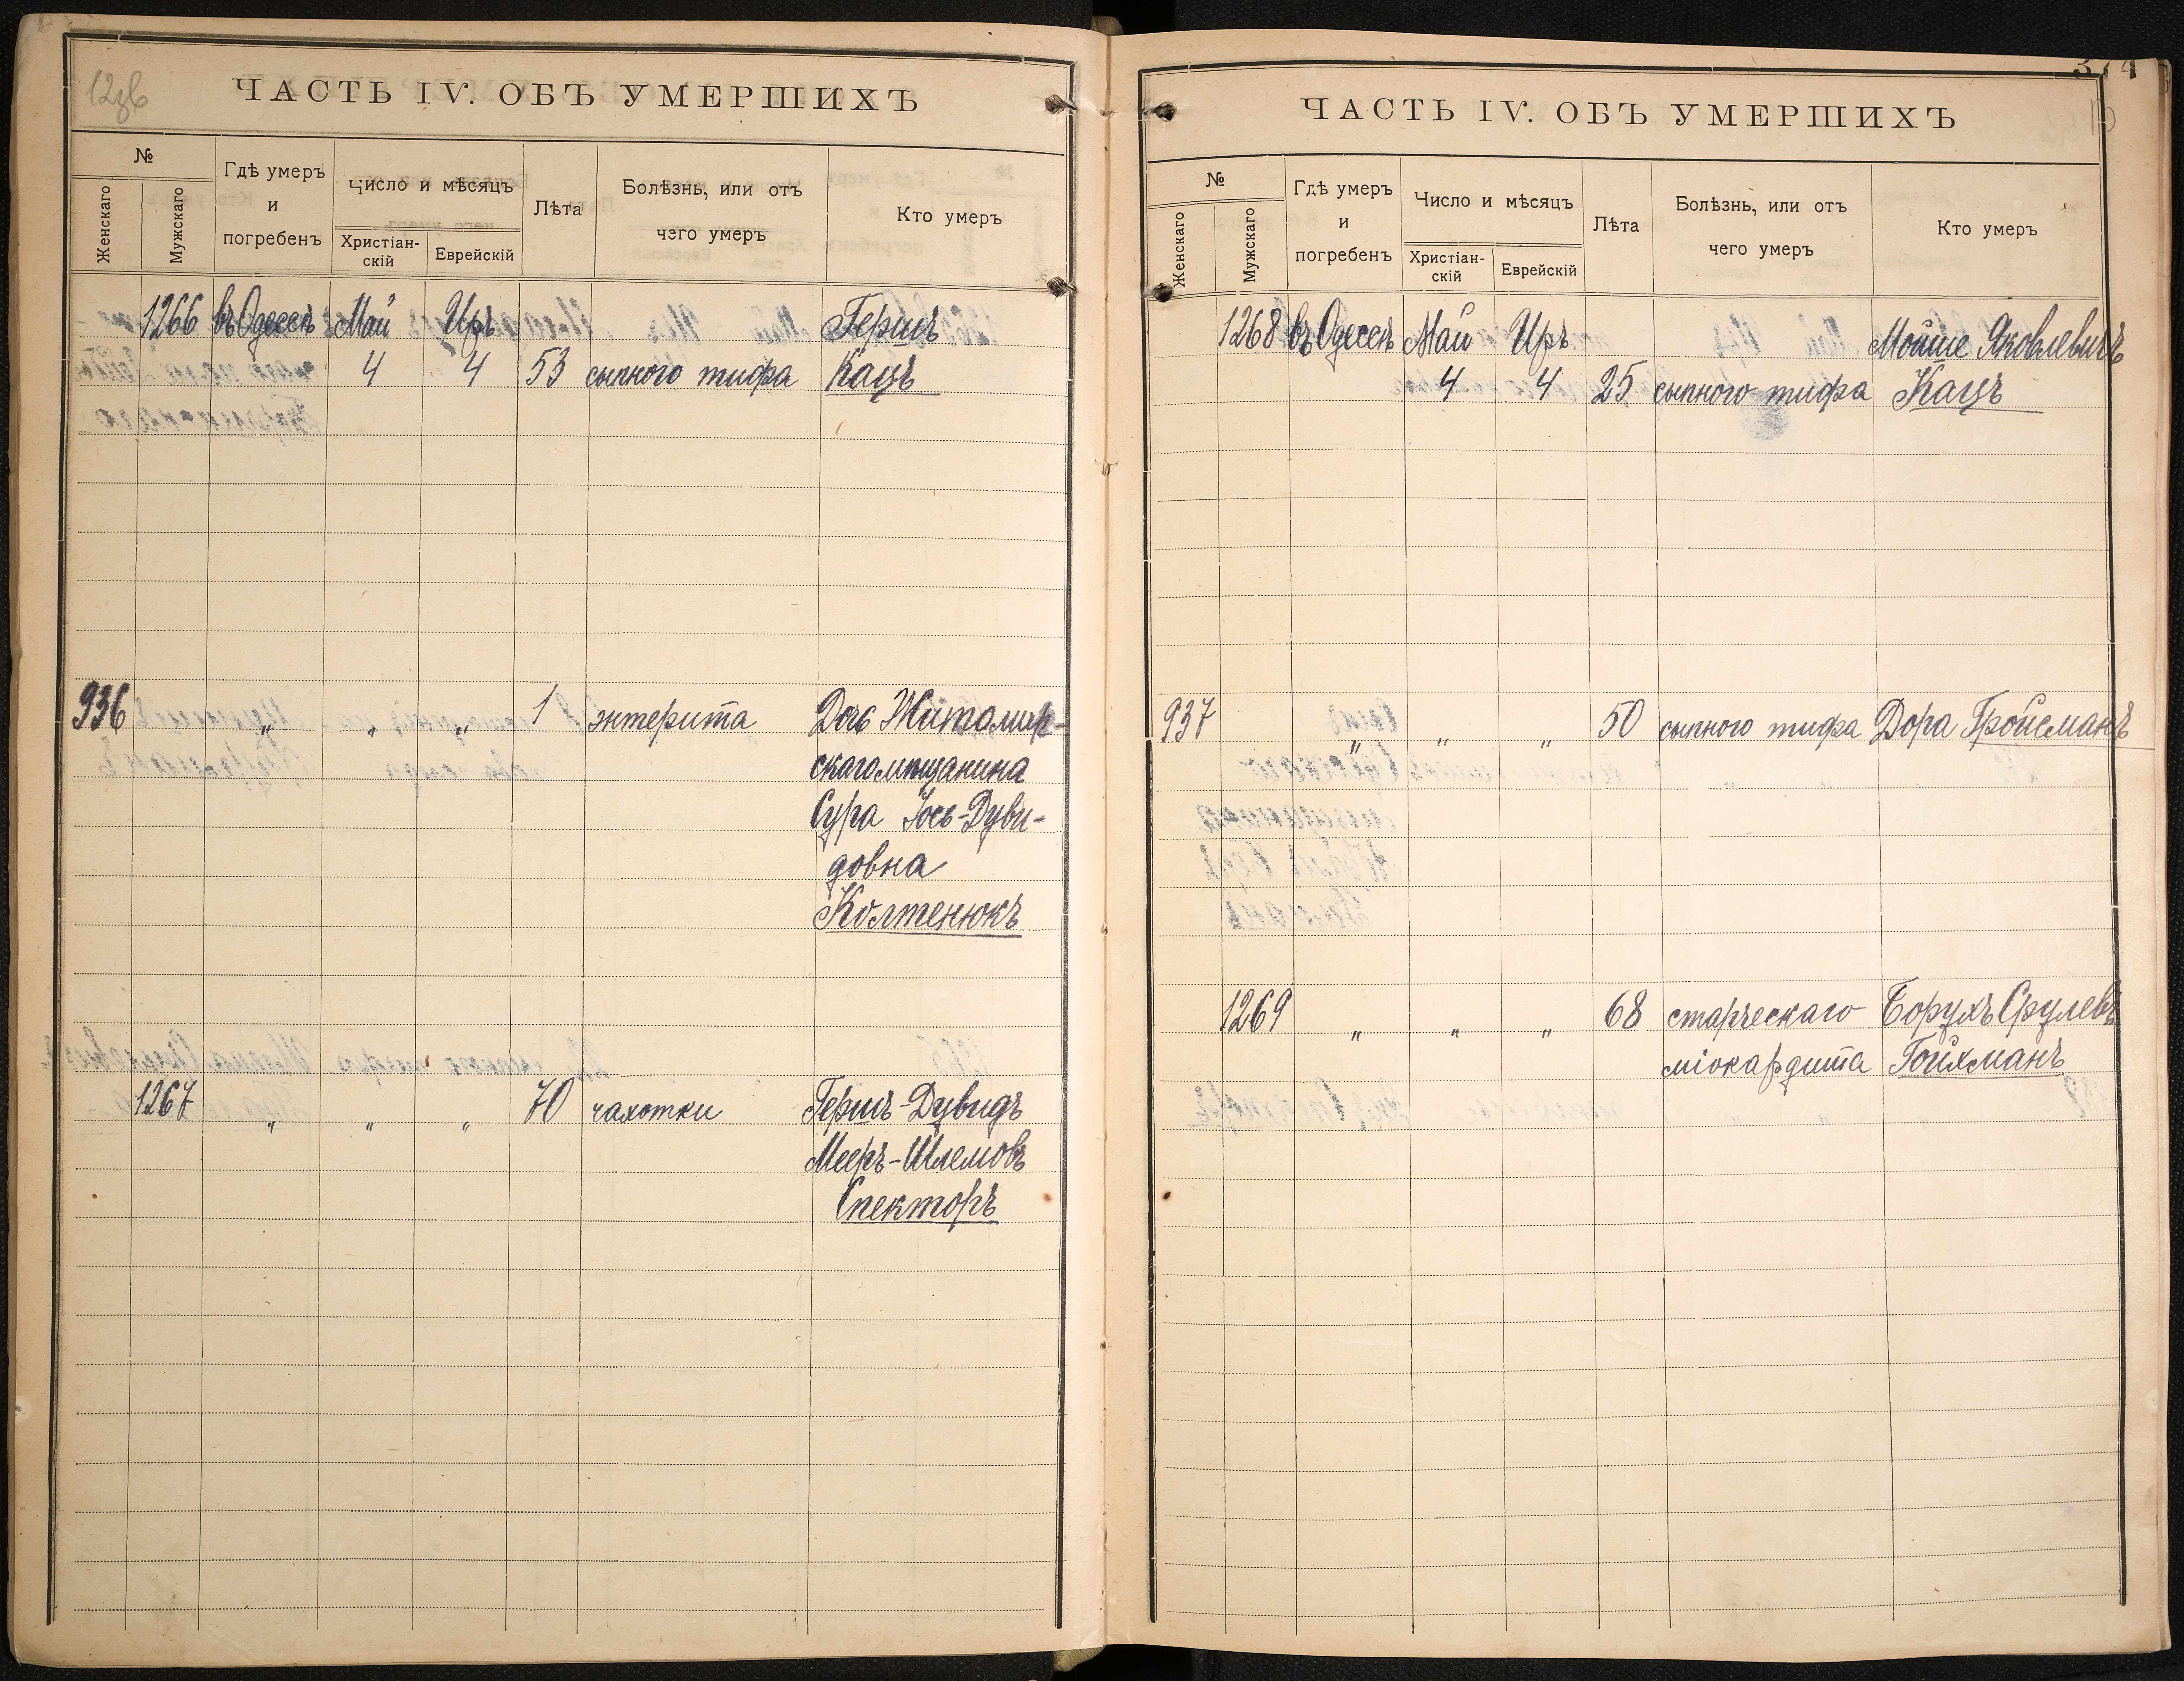 12зв
ЧАСТЬ IV. ОБЪ УМЕРШИХЪ
№
Женскаго
Мужскаго
Гдѣ умеръ
и
погребенъ
Число и мѣсяцъ
Христіан-
скій
Еврейскій
Лѣта
Болѣзнь, или отъ
чего умеръ
Кто умеръ
1266 въ Одессѣ Май Иръ Гершъ
4 4 53 сыпного тифа Кацъ
936 " " " 1 энтерита Дочь Житомир-
скаго мѣщанина
Сура Іось-Дуви-
довна
Колтенюкъ
1267 " " " 70 чахотки Гершъ-Дувидъ
Мееръ-Шлемовъ
Спекторъ
374
ЧАСТЬ IV. ОБЪ УМЕРШИХЪ
№
Женскаго
Мужскаго
Гдѣ умеръ
и
погребенъ
Число и мѣсяцъ
Христіан-
скій
Еврейскій
Лѣта
Болѣзнь, или отъ
чего умеръ
Кто умеръ
1268 въ Одессѣ Май Иръ Мойше Яковлевичъ
4 4 25 сыпного тифа Кацъ
937 " " " 50 сыпного тифа Дора Гройсманъ
1269 " " " 68 старческаго Борухъ Срулевъ
міокардита Гойхманъ